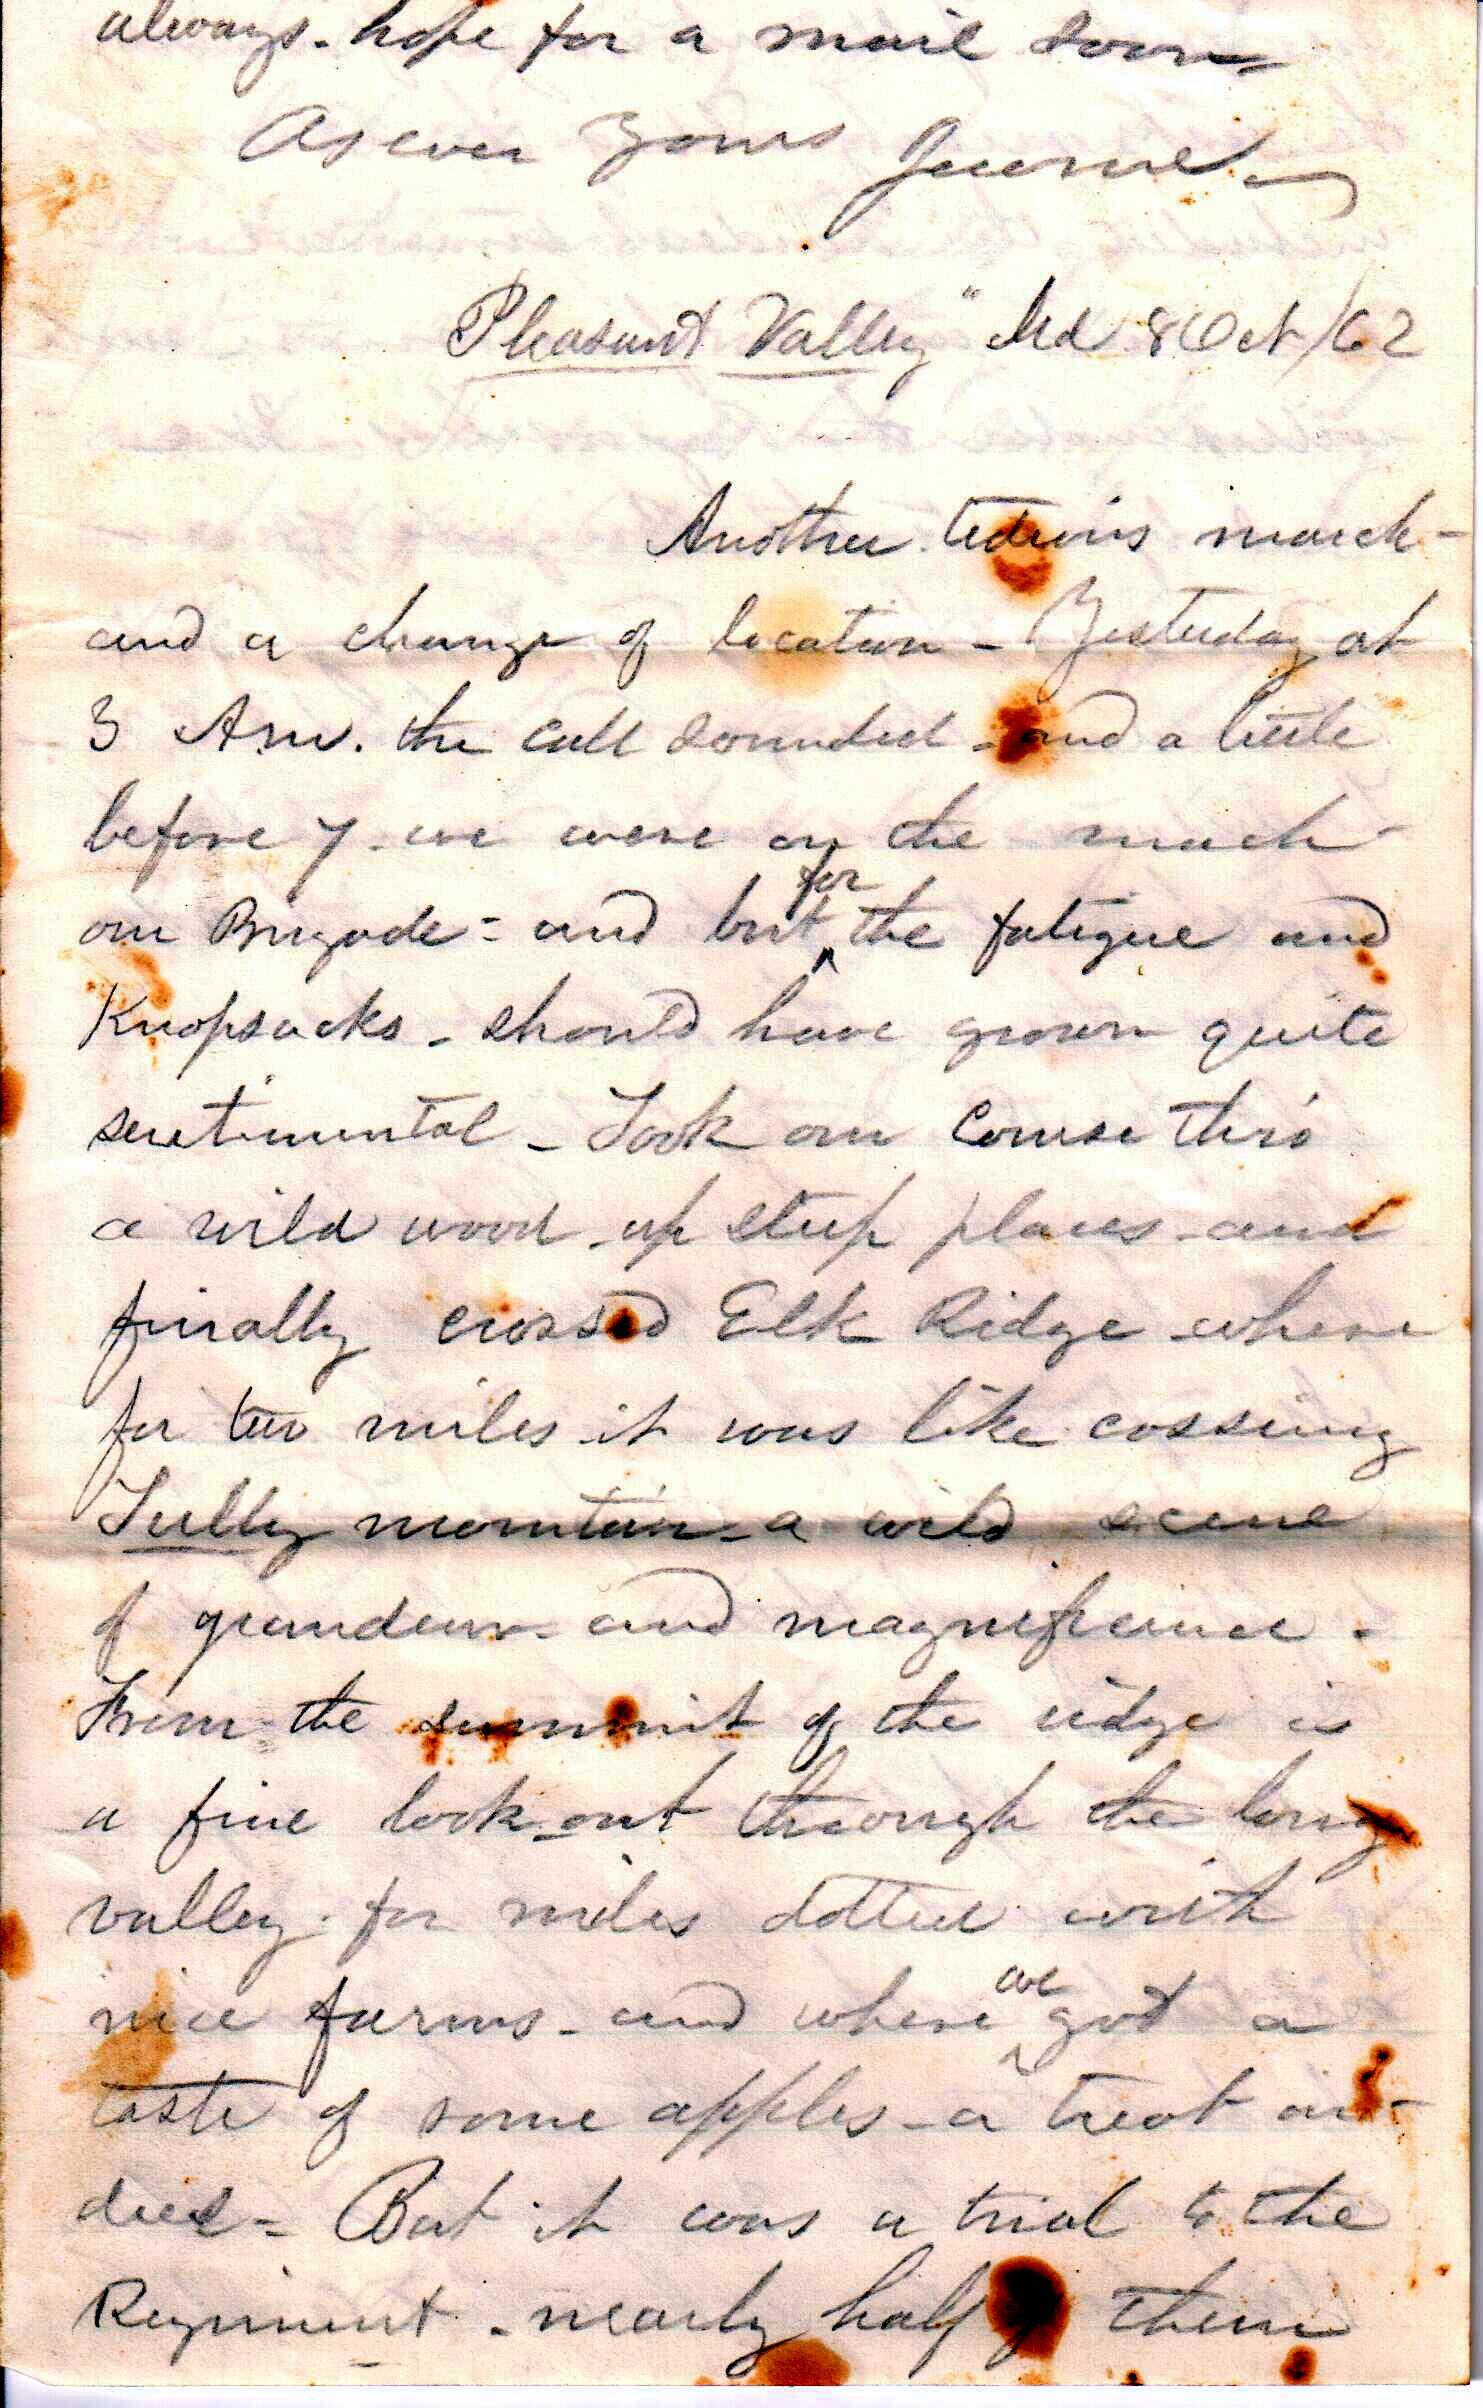 always - hope for a mail soon
As ever Yours
Pleasant Valley" Md 8 Oct /62
Another tedious march -
and a change of location - Yesterday at
3 Am. the call sounded - and a little
before 7 - we were on the march -
our Brigade = and but for the fatigue and
Knapsacks - should have grown quite
sentimental - Took our course thro'
a wild wood - up steep places - and
finally crossed Elk Ridge - where
for two miles it was like cossing
Tully mountain - a wild scene
of grandeur - and magnificence -
From the summit of the ridge is
a fine look-out through the long
valley - for miles dotted with
nice farms - and where we got a
taste of some apples - a treat in-
deed = But it was a trial to the
Regiment - nearly half of them